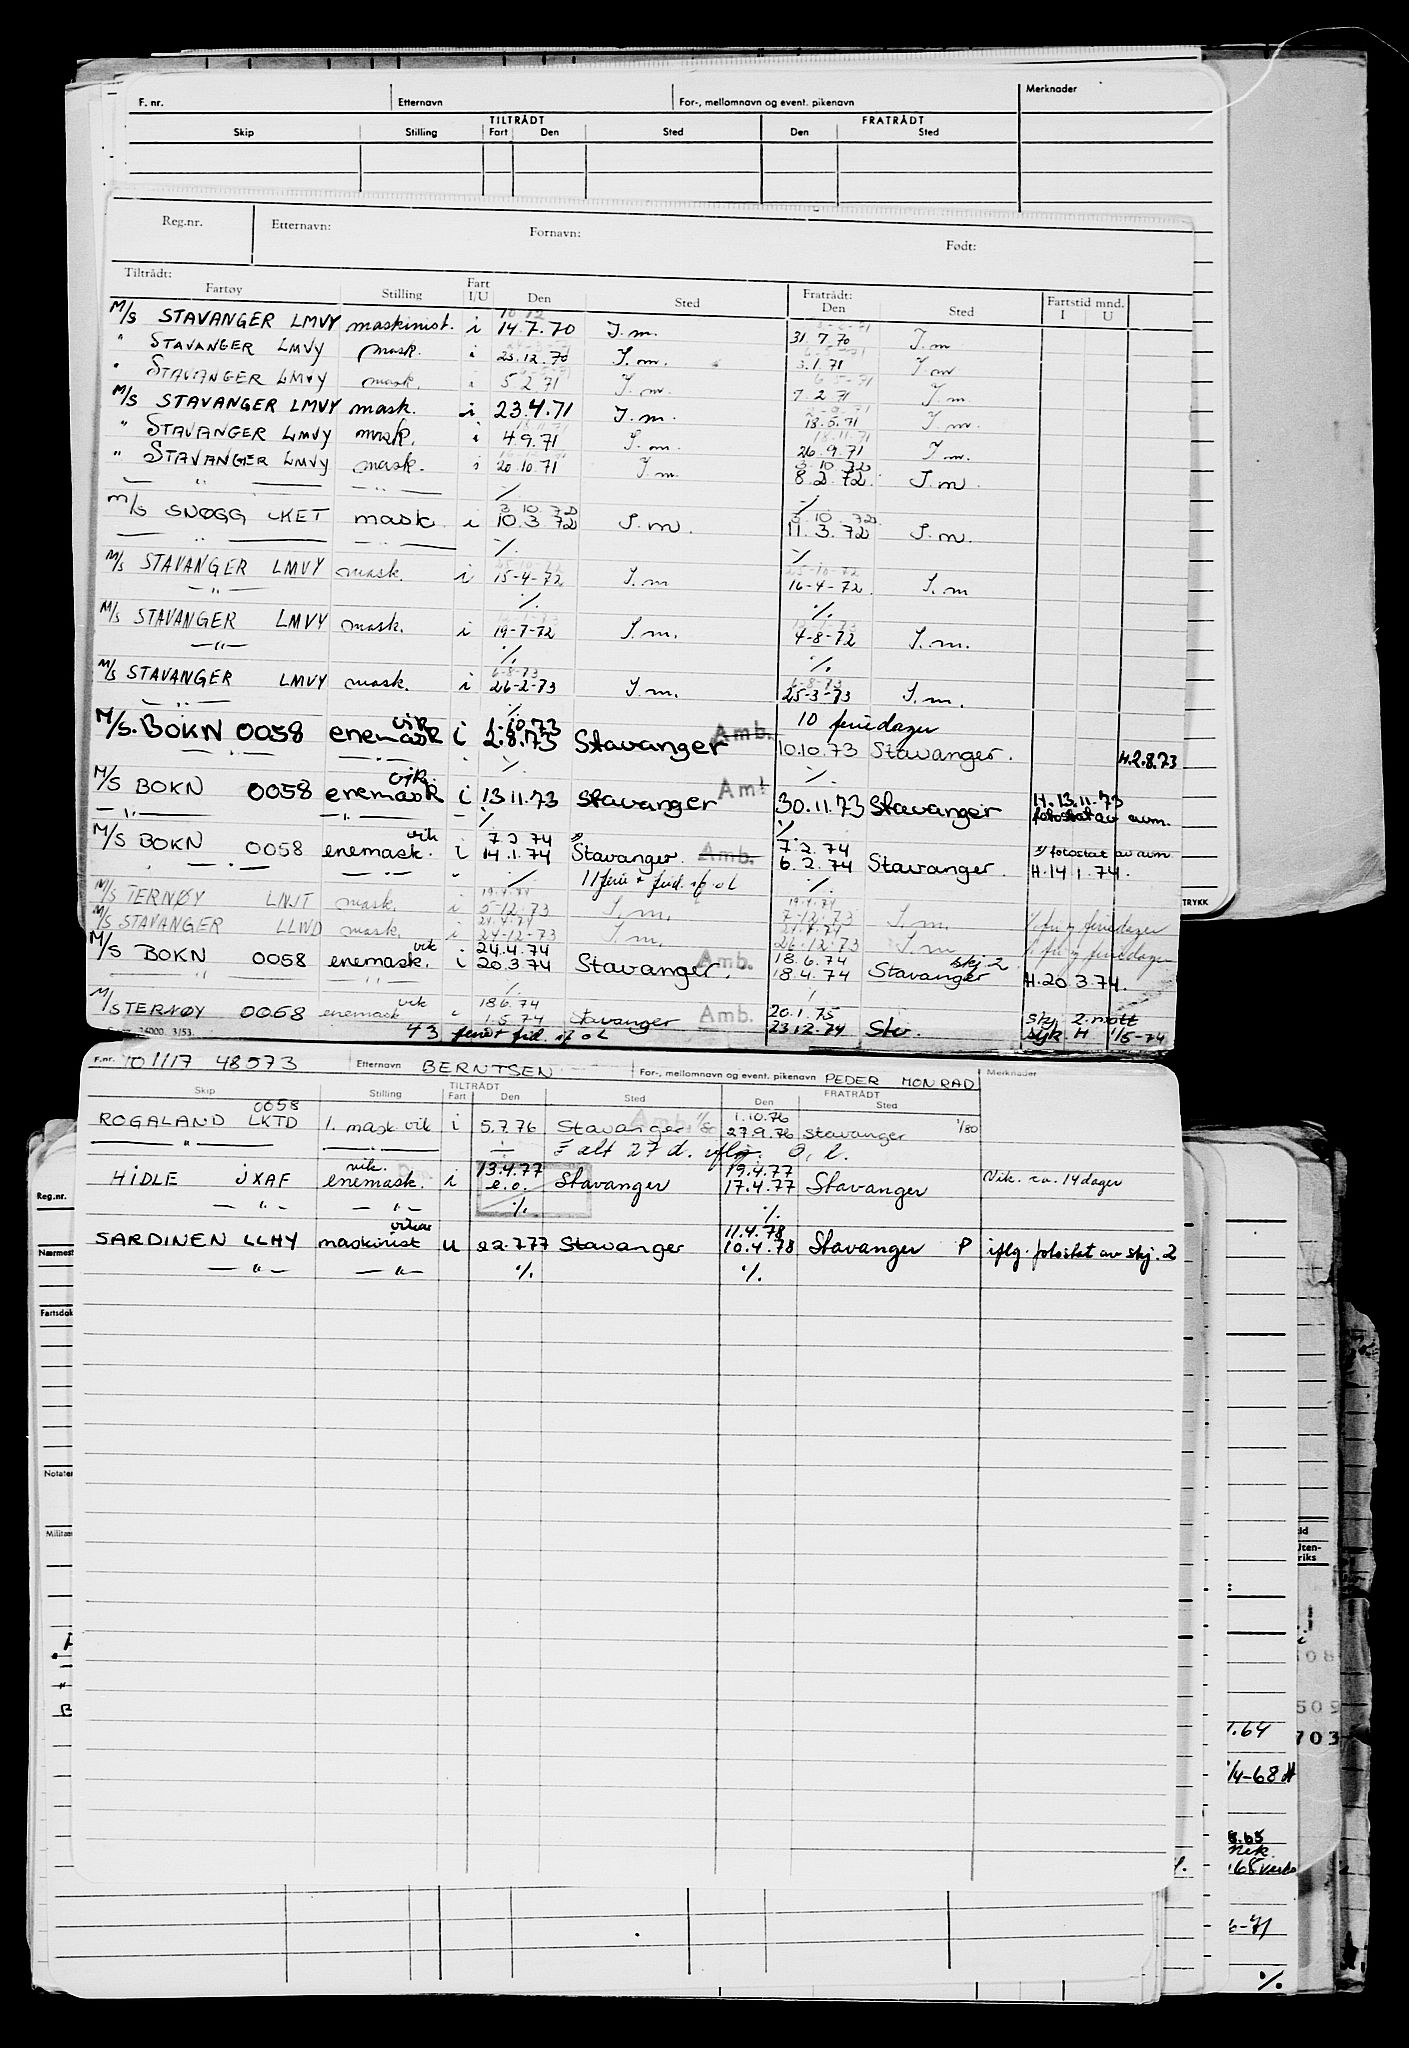 F. nr. Etternavn For-, mellomnavn og event. pikenavn Merknader
TILTRÅDT FRATRÅDT
Skip Stilling Fart Den Sted Den Sted
Reg.nr. Etternavn: Fornavn: Født:
Tiltrådt: Fratrådt: Fartstid mnd.
Fartøy Stilling Fart I/U Den Sted Den Sted I U
M/S STAVANGER LMVY maskinist. i 14.7.70 I.m. 31 7.70 I.m
" STAVANGER LMVY mask. i 23.12.70 I.m. 3.1.71 I.m
" STAVANGER LMVY mask. i 5 2 71 I.m. 7.2.71 I.m
M/S STAVANGER LMVY mask. i 23.4.71 I.m. 18.5.71 I.m.
" STAVANGER LMVY mask. i 4 9.71 I.m. 26.9.71 I.m.
" STAVANGER LMVY mask. i 20.10.71 I.m 3.10.72
8.2.72. I.m.
— " — — " — % %
3.10.72 3.10.72
M/S SNØGG LKET mask i 10.3 72 I.m. 11.3.72 I.m.
— " — — " — % %
M/S STAVANGER LMVY mask. i 15-4-72 I.m 16-4-72 I.m
— " — % %
M/S STAVANGER LMVY mask. i 19-7-72 I.m. 4-8-72 I.m.
— " — % %
6-8-73 6-8-73
M/S STAVANGER LMVY mask. i 26-2-73 I.m. 25-3-73 I.m.
— " — %
vik 1.10.73 10 feriedager
M/S. BOKN 0058 enemask i 2.8.73 Stavanger Amb. 10.10.73 Stavanger. H.2.8.73
— " — — " — % %
M/S BOKN 0058 enemask vik. i 13 11.73 Stavanger Amb 30.11.73 Stavanger H. 13.11.73
— " — — " — % % fotostat av avm.
vik 7 2 74 7.2.74 fotostat av avm
M/S BOKN 0058 enemask. i 14.1.74 Stavanger. Amb. 6.2.74 Stavanger H.14 1.74.
— " — — " — % 11 ferie + frid. if. oL %
19.4.74 19.4.74
M/S TERNØY LNJT mask. i 5-12-73 I.m. 7-12-73 I.m. fri og feriedager
24.4.74 24.4.74
M/S STAVANGER LLWD mask. i 24-12-73 I.m. 26-12-73 I.m fri og feriedager
vik 24.4.74 18.6.74 skj 2
M/S BOKN 0058 enemask. i 20.3 74 Stavanger. Amb. 18.4.74 Stavanger H.20 3.74.
" " %
vik 18 6.74 20.1.75 skj 2 mott
M/S TERNØY 0068 enemask 1.5.74 Stavanger Amb. 23.12.74 Stv. H 1/5-74
24000. 3/53. 43 feri+ frid. if oL
TRYKK
F.nr. 101117 48573 Etternavn BERNTSEN For-, mellomnavn og event. pikenavn PEDER MONRAD Merknader
TILTRÅDT FRATRÅDT
Skip Stilling Fart Den Sted Den Sted
0058 1.10.76
ROGALAND LKTD 1. mask vik i 5.7.76 Stavanger Amb. 27.9.76 Stavanger 1/80
— " — — " — ÷ I alt 27 d. iflg. O, l.
vik. 13.4.77 19.4.77
HIDLE JXAF enemask. i e.o. Stavanger 17.4.77 Stavanger Vik. ca. 14 dager
— " — — " — % %
vikar 11.4.78
SARDINEN LLHY maskinist u 22.7.77 Stavanger 10.4.78 Stavanger P iflg. fotostat av skj. 2
— " — — " — % %
Reg.nr.
Nærmest
Fartsdok
Notater
Militær
Uten-
riks
508
509
703
.64
/4-68 H
68 verks
6-71
%